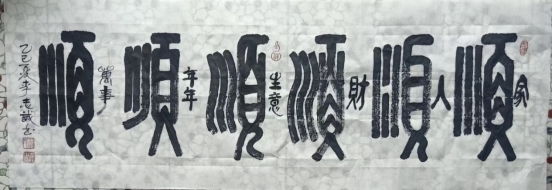 家順人順財順生意順年年順萬事順
乙巳夏李志誠